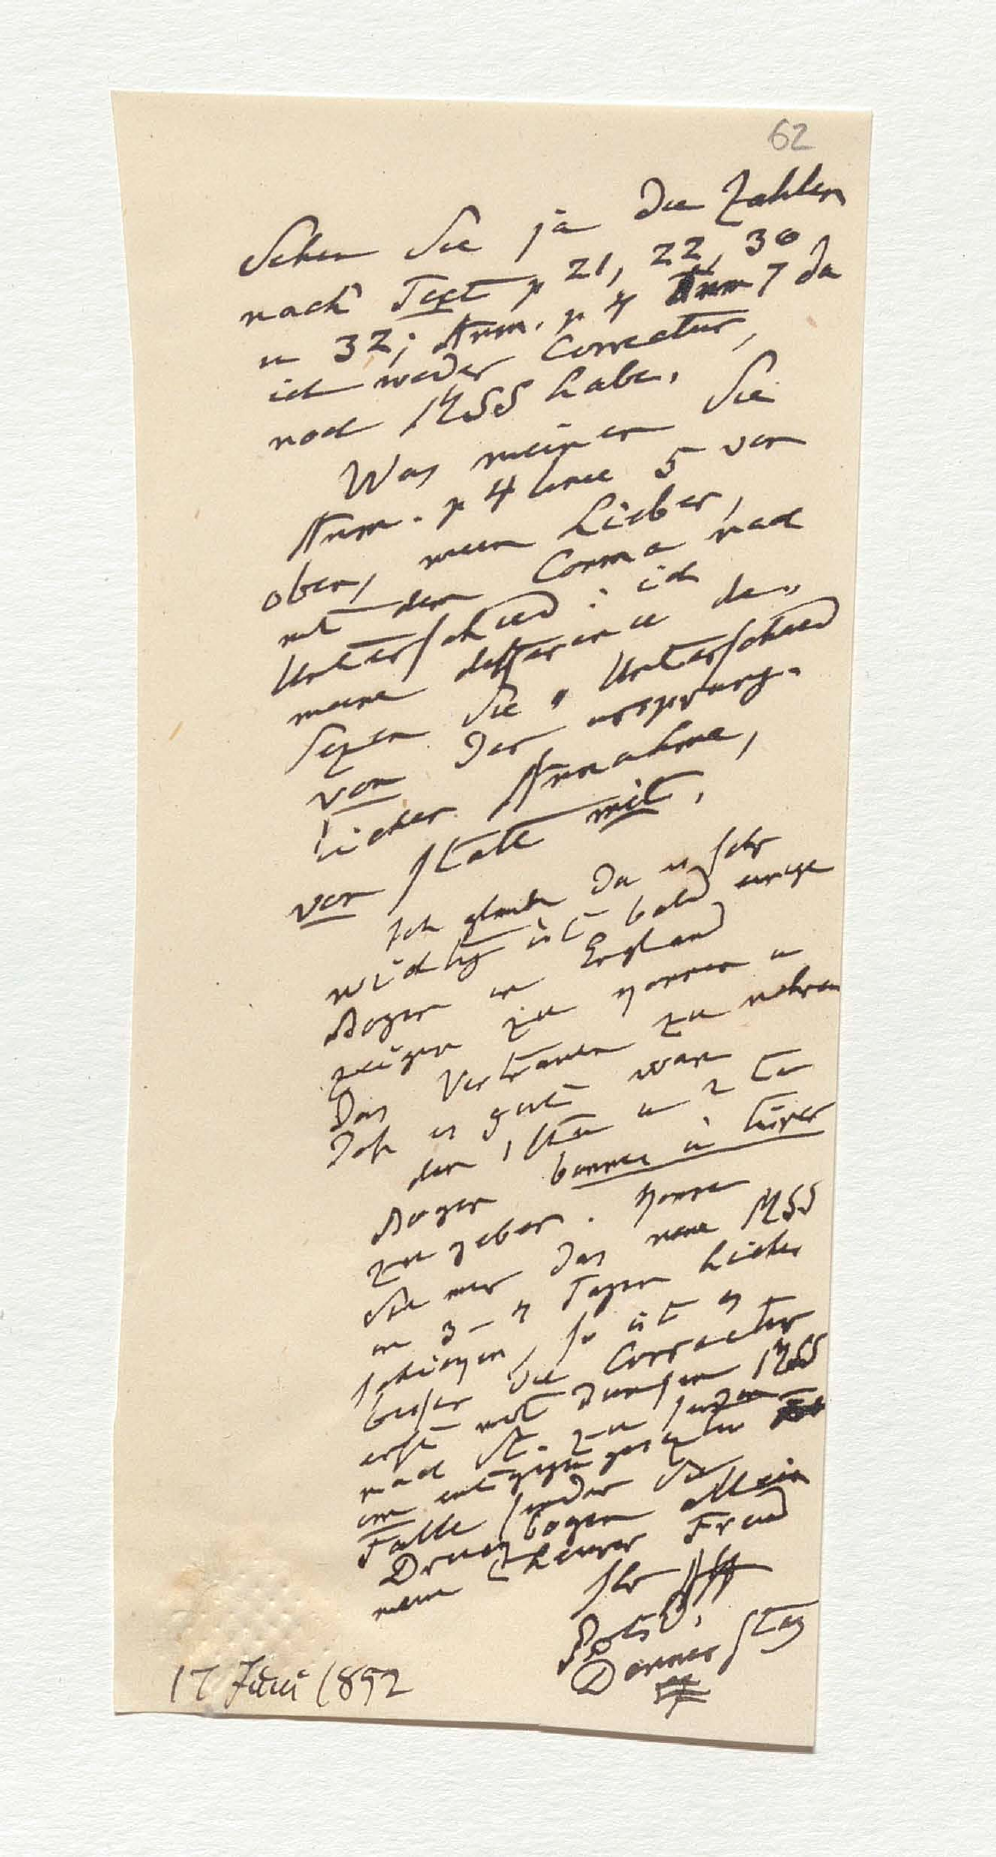 62
Sehen Sie ja die Zahlen
nach Text p 21, 22, 30
u 32; Anm. p 4 Anm 7 da
ich weder Correctur,
noch MSS habe.
Was meinen Sie
Anm. p 4 linie 5 von
oben, mein Lieber,
mit dem Comma nach
Unterschied: ich
meine
Sezen Sie " Unterschied
von der ursprüng-
licher Annahme,
von statt mit.
Ich glaube da es sehr
wichtig ist bald einige
Bogen in England
zeigen zu konnen u
Das Vertrauen zu nehmen
Dass es gut ware
den 1sten u 2 ten
Bogen
zu geben. Konnen
Sie mir das neue MSS
in 3–4 Tagen Lieber
schicken, so ist es
besser die Correctur
erst mit diesem MSS
nach St. zu senden
im entgegengesezten
Falle senden Sie
Druckbogen allein
mein theurer Freund
Ihr
Potsd.
Donnerstag
17 Juni 1852